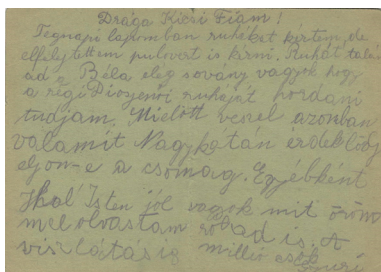 Drága Kicsi Fiam!
Tegnapi lapomban ruhéket kértem, de
elfelejtettem pulovert is kérni. Ruhát talá
ád z Béla elég sovány vagyok hogy
a régi Diószenöi ruháját hordani
tudjam. Mielött veszel azonban
valamit Nagykátán érdeklödj
eljön-e a csomag. Egyébként
hál Isten jól vagyok mit öröm
mel olvastam rólad is. A
viszlátásig millió csók